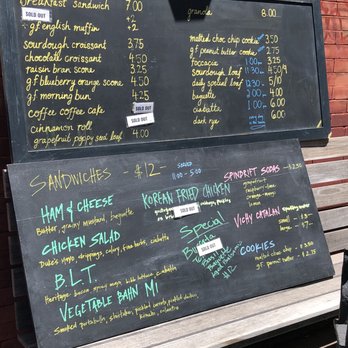 breakfast sandwich 7.00
SOLD OUT +2
gf english muffin +2
sourdough croissant 3.75
chocolate croissant 4.50
raisin bran scone 3.25
gf blueberry orange scone 4.50
gf morning bun 4.25
coffee coffee cake SOLD OUT
cinnamon roll SOLD OUT
grapefruit poppy seed loaf 4.00
granola 8.00
malted choc chip cookie 3.50
gf peanut butter cookie 2.75
foccacia 1:00 3.25
sourdough loaf 11:30
daily special loaf 12:30
baguette 5:00
ciabatta 1:00
dark rye 6.00
SANDWICHES - $12 - SERVED
11:00 - 5:00
HAM & CHEESE
Butter, grainy mustard, baguette
CHICKEN SALAD
Duke's mayo, celery, ciabatta
B.L.T.
Heritage bacon, spicy mayo, bibb lettuce, ciabatta
VEGETABLE BAHN MI
Smoked portabella, pickled carrots, pickled daikon,
cilantro
KOREAN FRIED CHICKEN
SOLD OUT
Special
SOLD OUT
$12
SPINDRIFT SODAS - $2.50
grapefruit
raspberry-lime
orange-mango
lemon
VICHY CATALAN
small -
large -
COOKIES
malted choc chip - $3.50
g.f. peanut butter - $2.75